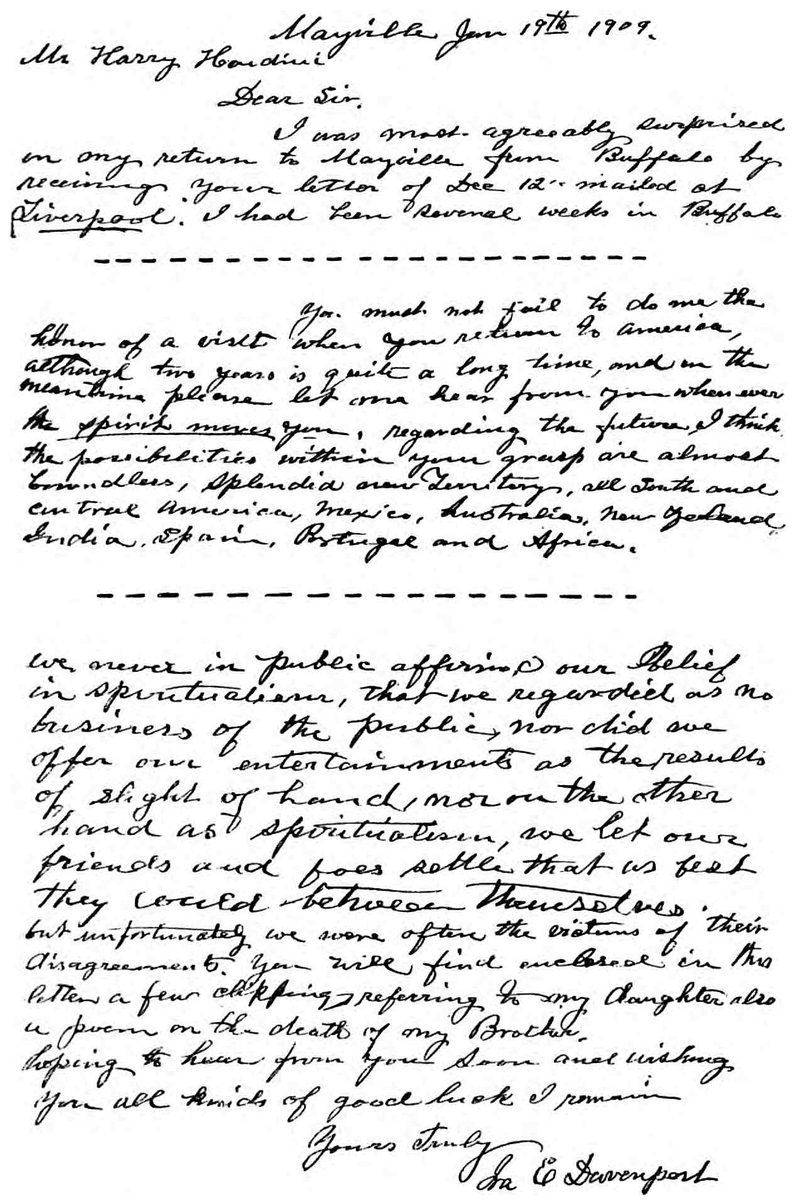 Mayville Jan 19th 1909.
Mr Harry Houdini
Dear Sir.
I was most agreeably surprised
on my return to Mayville from Buffalo by
receiving your letter of Dec 12" mailed at
Liverpool. I had been several weeks in Buffalo
You must not fail to do me the
honor of a visit when you return to America,
although two years is quite a long time, and in the
meantime please let me hear from you when ever
the spirit moves you, regarding the future, I think
the possibilities within your grasp are almost
boundless, splendid new Territory, all South and
central America, Mexico, Australia, New Zealand,
India, Spain, Portugal and Africa.
We never in public affirmed our Belief
in spiritualism, that we regarded as no
business of the public, nor did we
offer our entertainments as the results
of slight of hand, nor on the other
hand as spiritualism, we let our
friends and foes settle that as best
they could between themselves.
but unfortunately we were often the victims of their
disagreement. You will find enclosed in this
letter a few clippings referring to my daughter also
a poem on the death of my Brother.
hoping to hear from you soon and wishing
you all kinds of good luck I remain
Yours Truly
Ira E Davenport